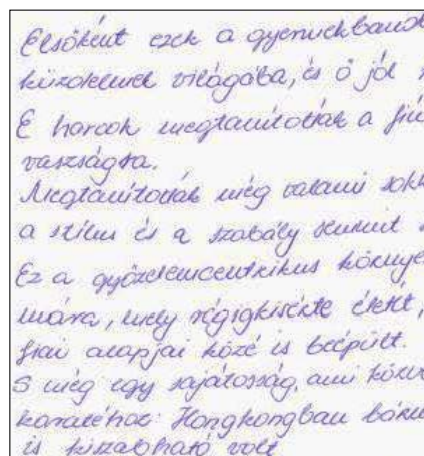 Elsőként ezek a gyermekband
küzdelmek világába, és ő jól
E harcok megtanították a fiú
vaszságra.
Megtanították még valami sokk
a stílus és a szabály semmit
Ez a győzelemcentrikus környe
mára, mely végigkísérte életét,
fiai alapjai közé is beépült.
S még egy sajátosság, ami közv
karatéhoz: Hongkongban bárm
is kiszabható volt